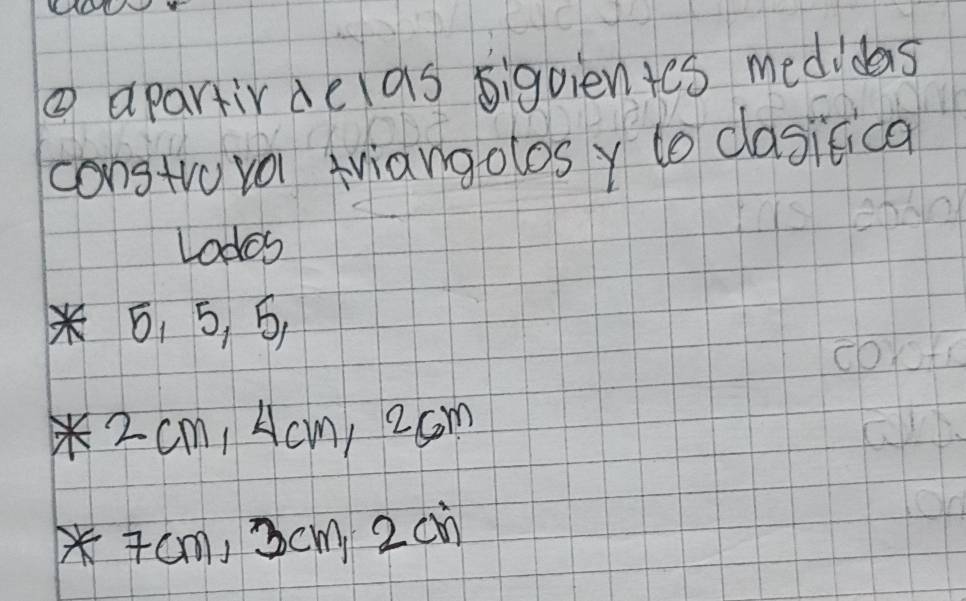 ② apartir delas siguientes medidas
construya triangolos y lo clasifica
Lados
* 5, 5, 5,
* 2 cm, 4cm, 2cm
* 7cm, 3cm, 2cm